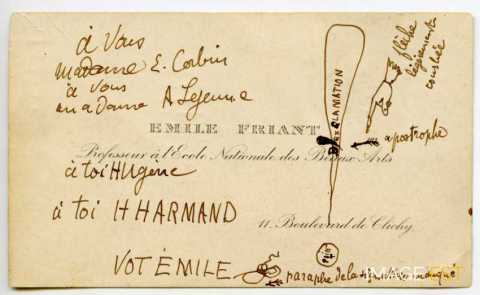 à Vous
madame E. Corbin
à Vous
madame A Lejeune
EMILE FRIANT
Professeur à l'Ecole Nationale des Beaux-Arts
à toi H
à toi H HARMAND
11. Boulevard de Clichy
VOT ÉMILE
EXCLAMATION
flèche
légèrement
courbée
apostrophe
paraphe de la
IMAGE